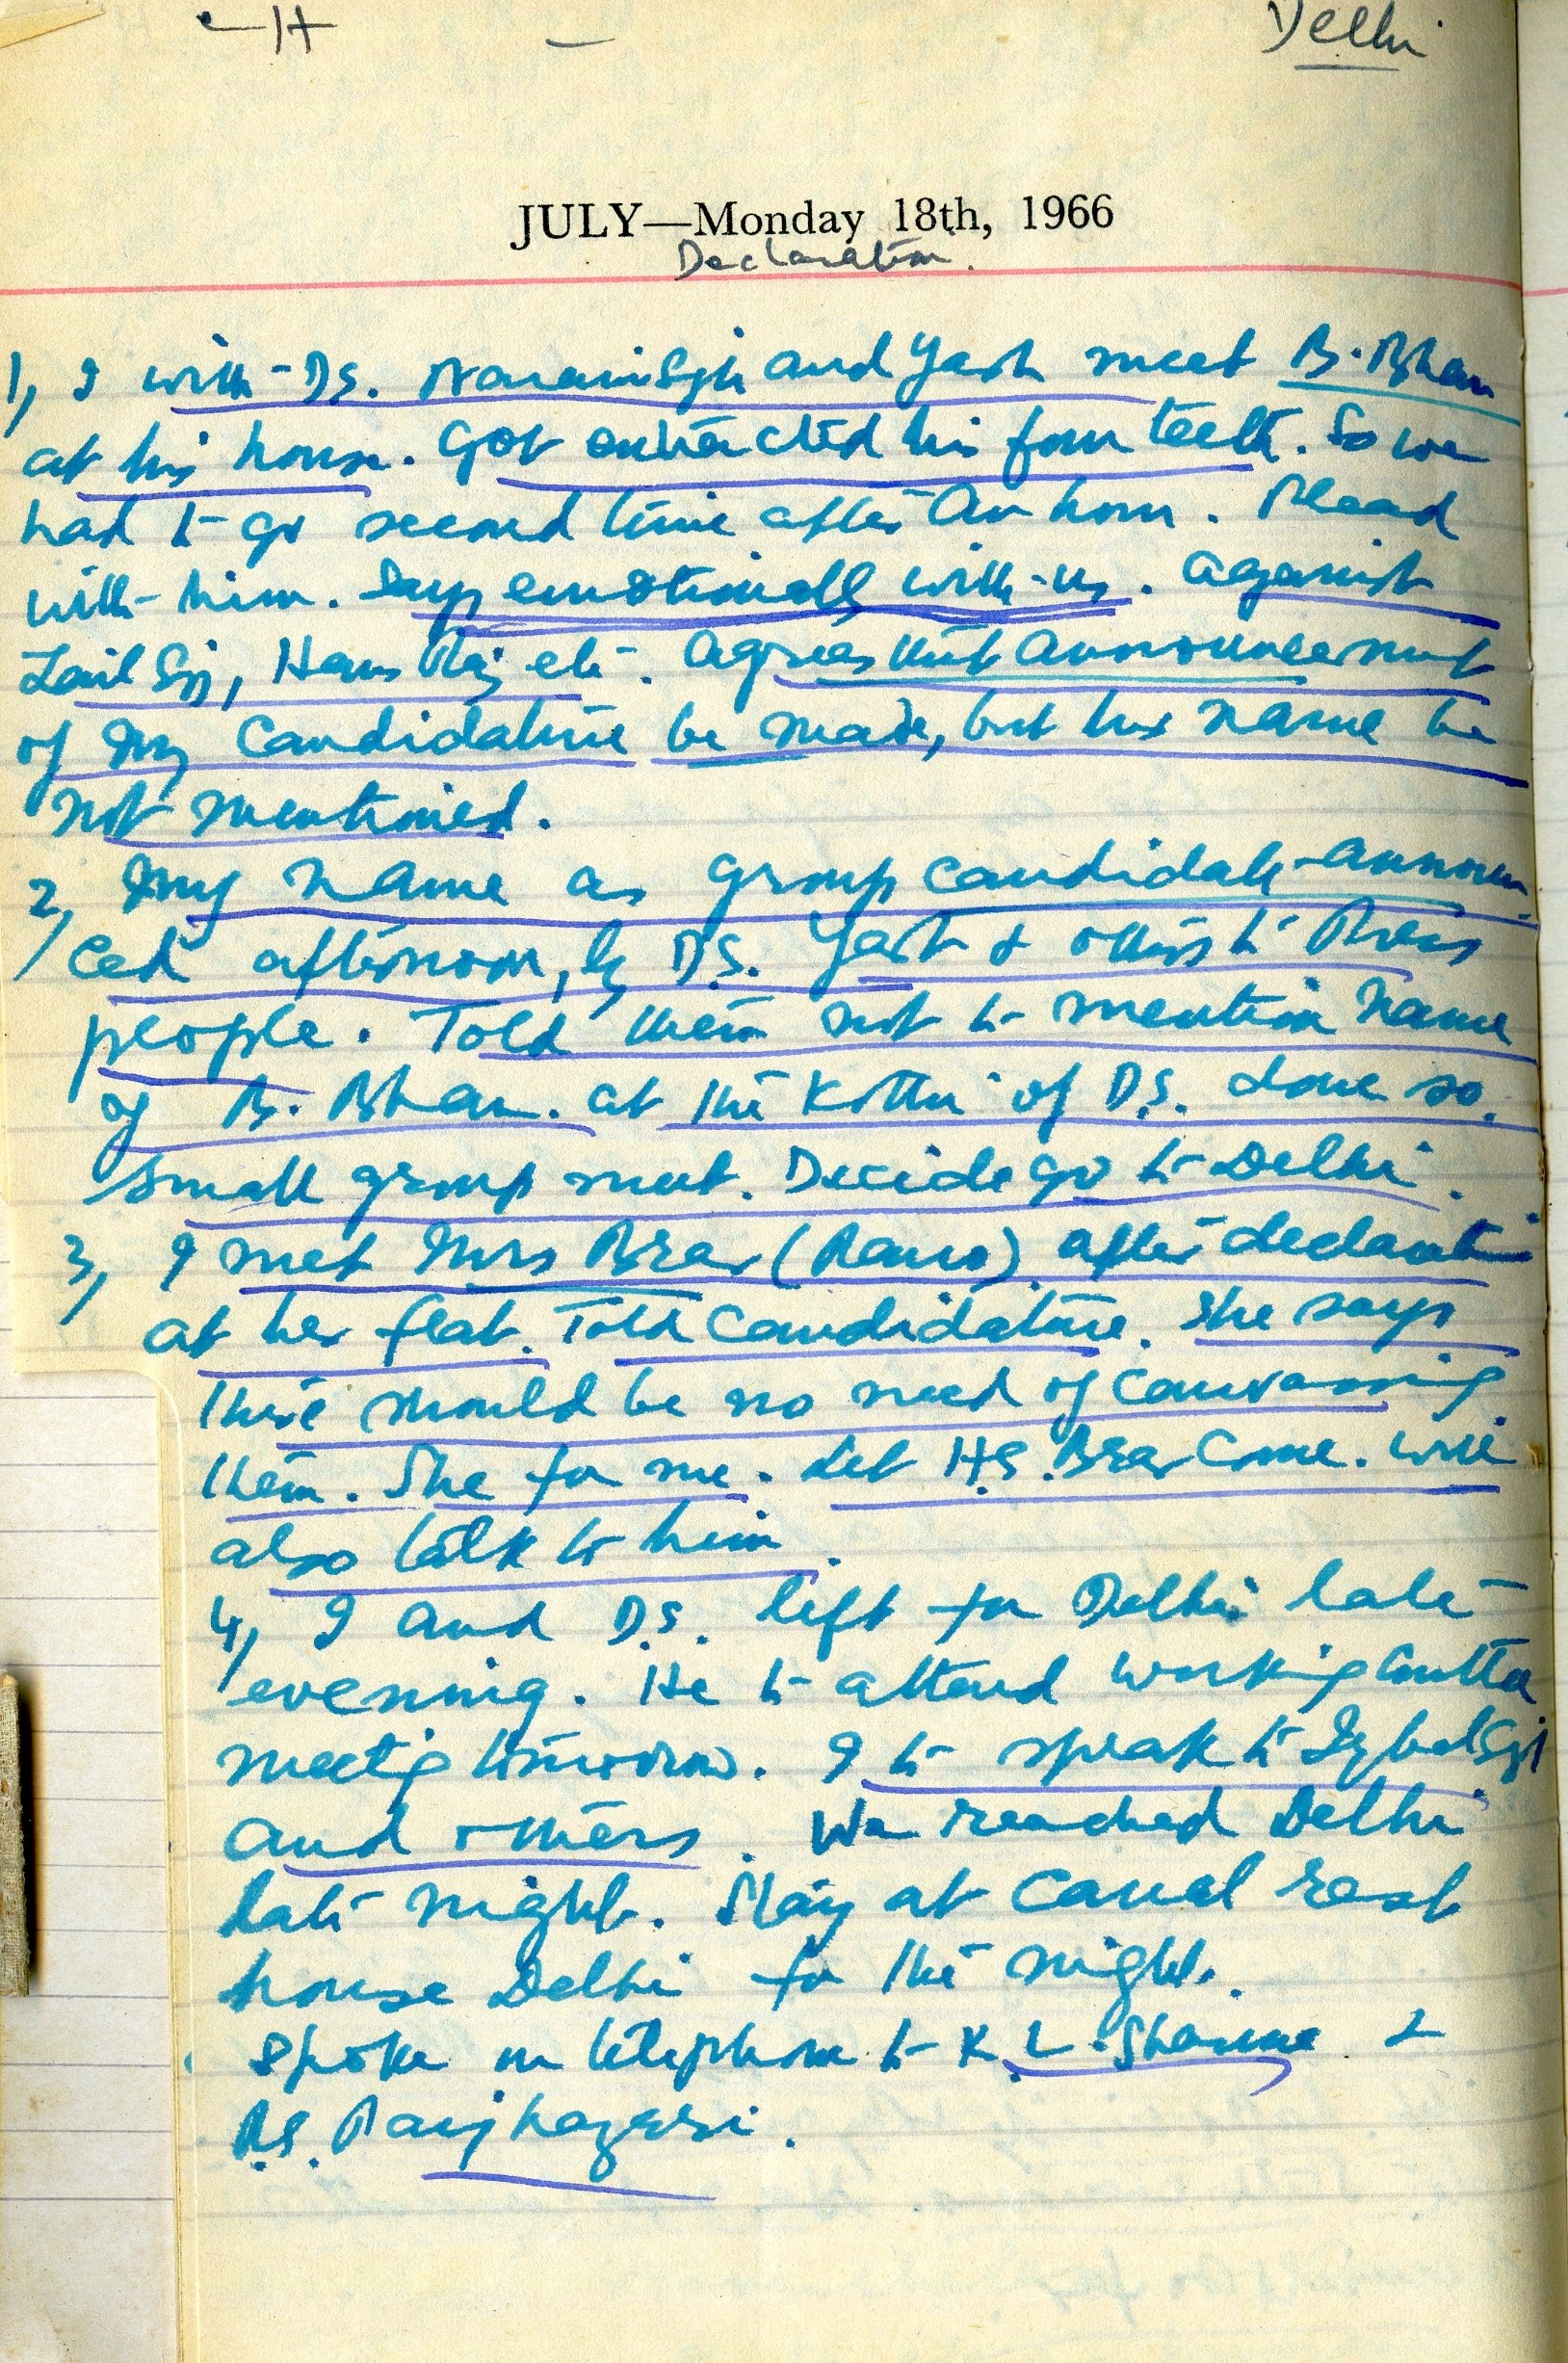 Delhi
JULY—Monday 18th, 1966
Declaration.
1, I with D.S. NarainSgh and Yash meet B. Bhan
at his house. Got extracted his four teeth. So we
had to go second time after an hour. Plead
with him. Says emotionally with us. Against
Zail Sg, Hans Raj etc. Agrees that announcement
of my candidature be made, but his name be
not mentioned.
2, My name as group candidate announ-
ced afternoon, by D.S. Yash & others to Press
people. Told them not to mention name
of B. Bhan. at the Kothi of D.S. done so.
Small group meet. Decide go to Delhi.
3, I met Mrs Brar ( ) after declaration
at her flat. Told candidature. She says
there should be no need of canvassing
them. She for me. Let H.S. Brar come. Will
also talk to him.
4, I and D.S. left for Delhi late
evening. He to attend working Cmttee
meetig tomorrow. I to speak to IqbalSgh
and others. We reached Delhi
late night. Stay at Canal rest
house Delhi for the night.
Spoke on telephone to K. L. Sharma &